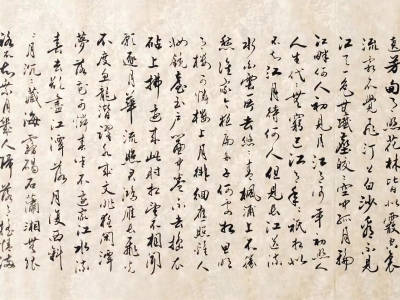 遶芳甸月照花林皆似霰空裏
流霜不覺飛汀上白沙看不見
江天一色無纖塵皎皎空中孤月輪
江畔何人初見月江月何年初照
人人生代代無窮已江月年年祇相似
不知江月待何人但見長江送流
水白雲一片去悠悠青楓浦上不勝
愁誰家今夜扁舟子何處相思明
月樓可憐樓上月徘徊應照離人
妝鏡臺玉戶簾中卷不去擣衣
砧上拂還來此時相望不相聞
願逐月華流照君鴻雁長飛光
不度魚龍潛躍水成文昨夜閑潭
夢落花可憐春半不還家江水流
春去欲盡江潭落月復西斜
斜月沉沉藏海霧碣石瀟湘無限
路不知乘月幾人歸落月搖情滿